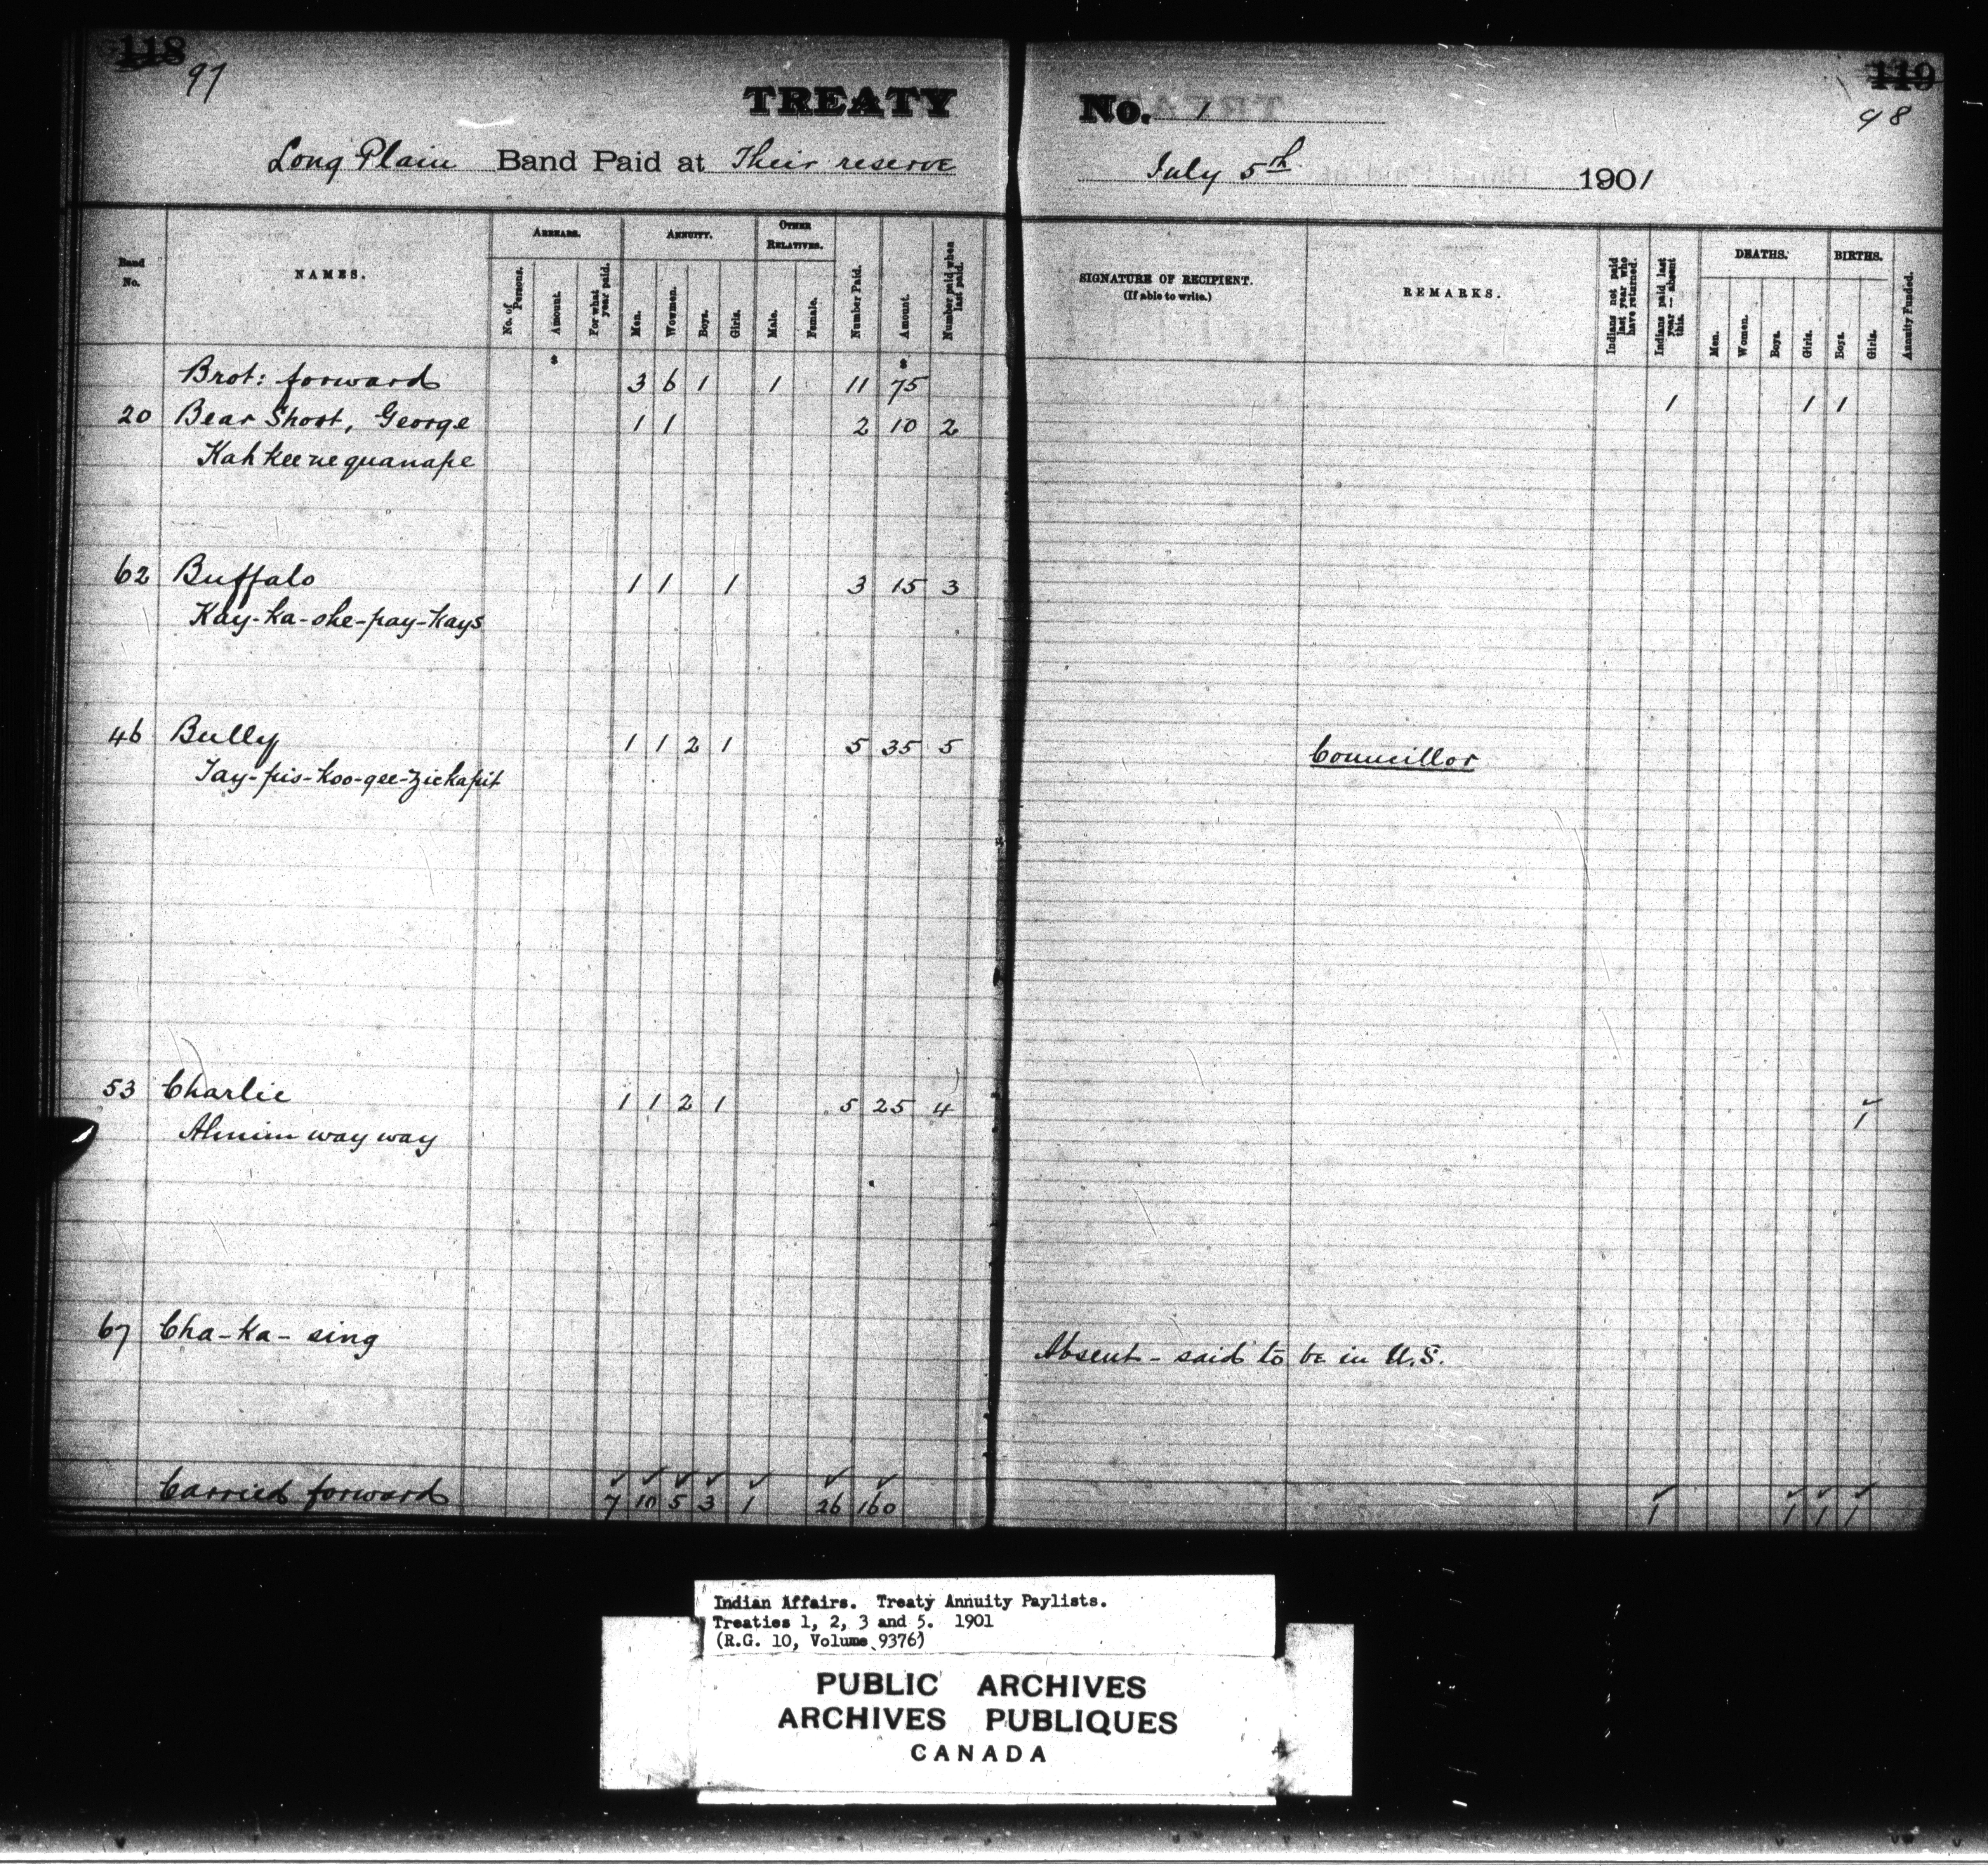 118 119
97 98
TREATY No. 1
Long Plain Band Paid at Their reserve July 5th 1901
Band No. NAMES. ARREARS. No. of Persons. Amount. For what year paid. ANNUITY. Men. Women. Boys. Girls. OTHER RELATIVES. Male. Female. Number Paid. Amount. Number paid when last paid. SIGNATURE OF RECIPIENT. (If able to write.) REMARKS. Indians not paid last year who have returned. Indians paid last year — absent this. DEATHS. Men. Women. Boys. Girls. BIRTHS. Boys. Girls. Annuity Funded.
Brot: forward 3 6 1 1 11 75 1 1 1
20 Bear Short, George 1 1 2 10 2
Kah kee ne quanape
62 Buffalo 1 1 1 3 15 3
Kay-ka-she-pay-kays
46 Bully 1 1 2 1 5 35 5 Councillor
Tay-pis-koo-gee-zickapit
53 Charlie 1 1 2 1 5 25 4 1
Ahnim way way
67 Cha-ka-sing Absent - said to be in U.S.
Carried forward 7 10 5 3 1 26 160 1 1 1 1
Indian Affairs. Treaty Annuity Paylists.
Treaties 1, 2, 3 and 5. 1901
(R.G. 10, Volume 9376)
PUBLIC ARCHIVES
ARCHIVES PUBLIQUES
CANADA